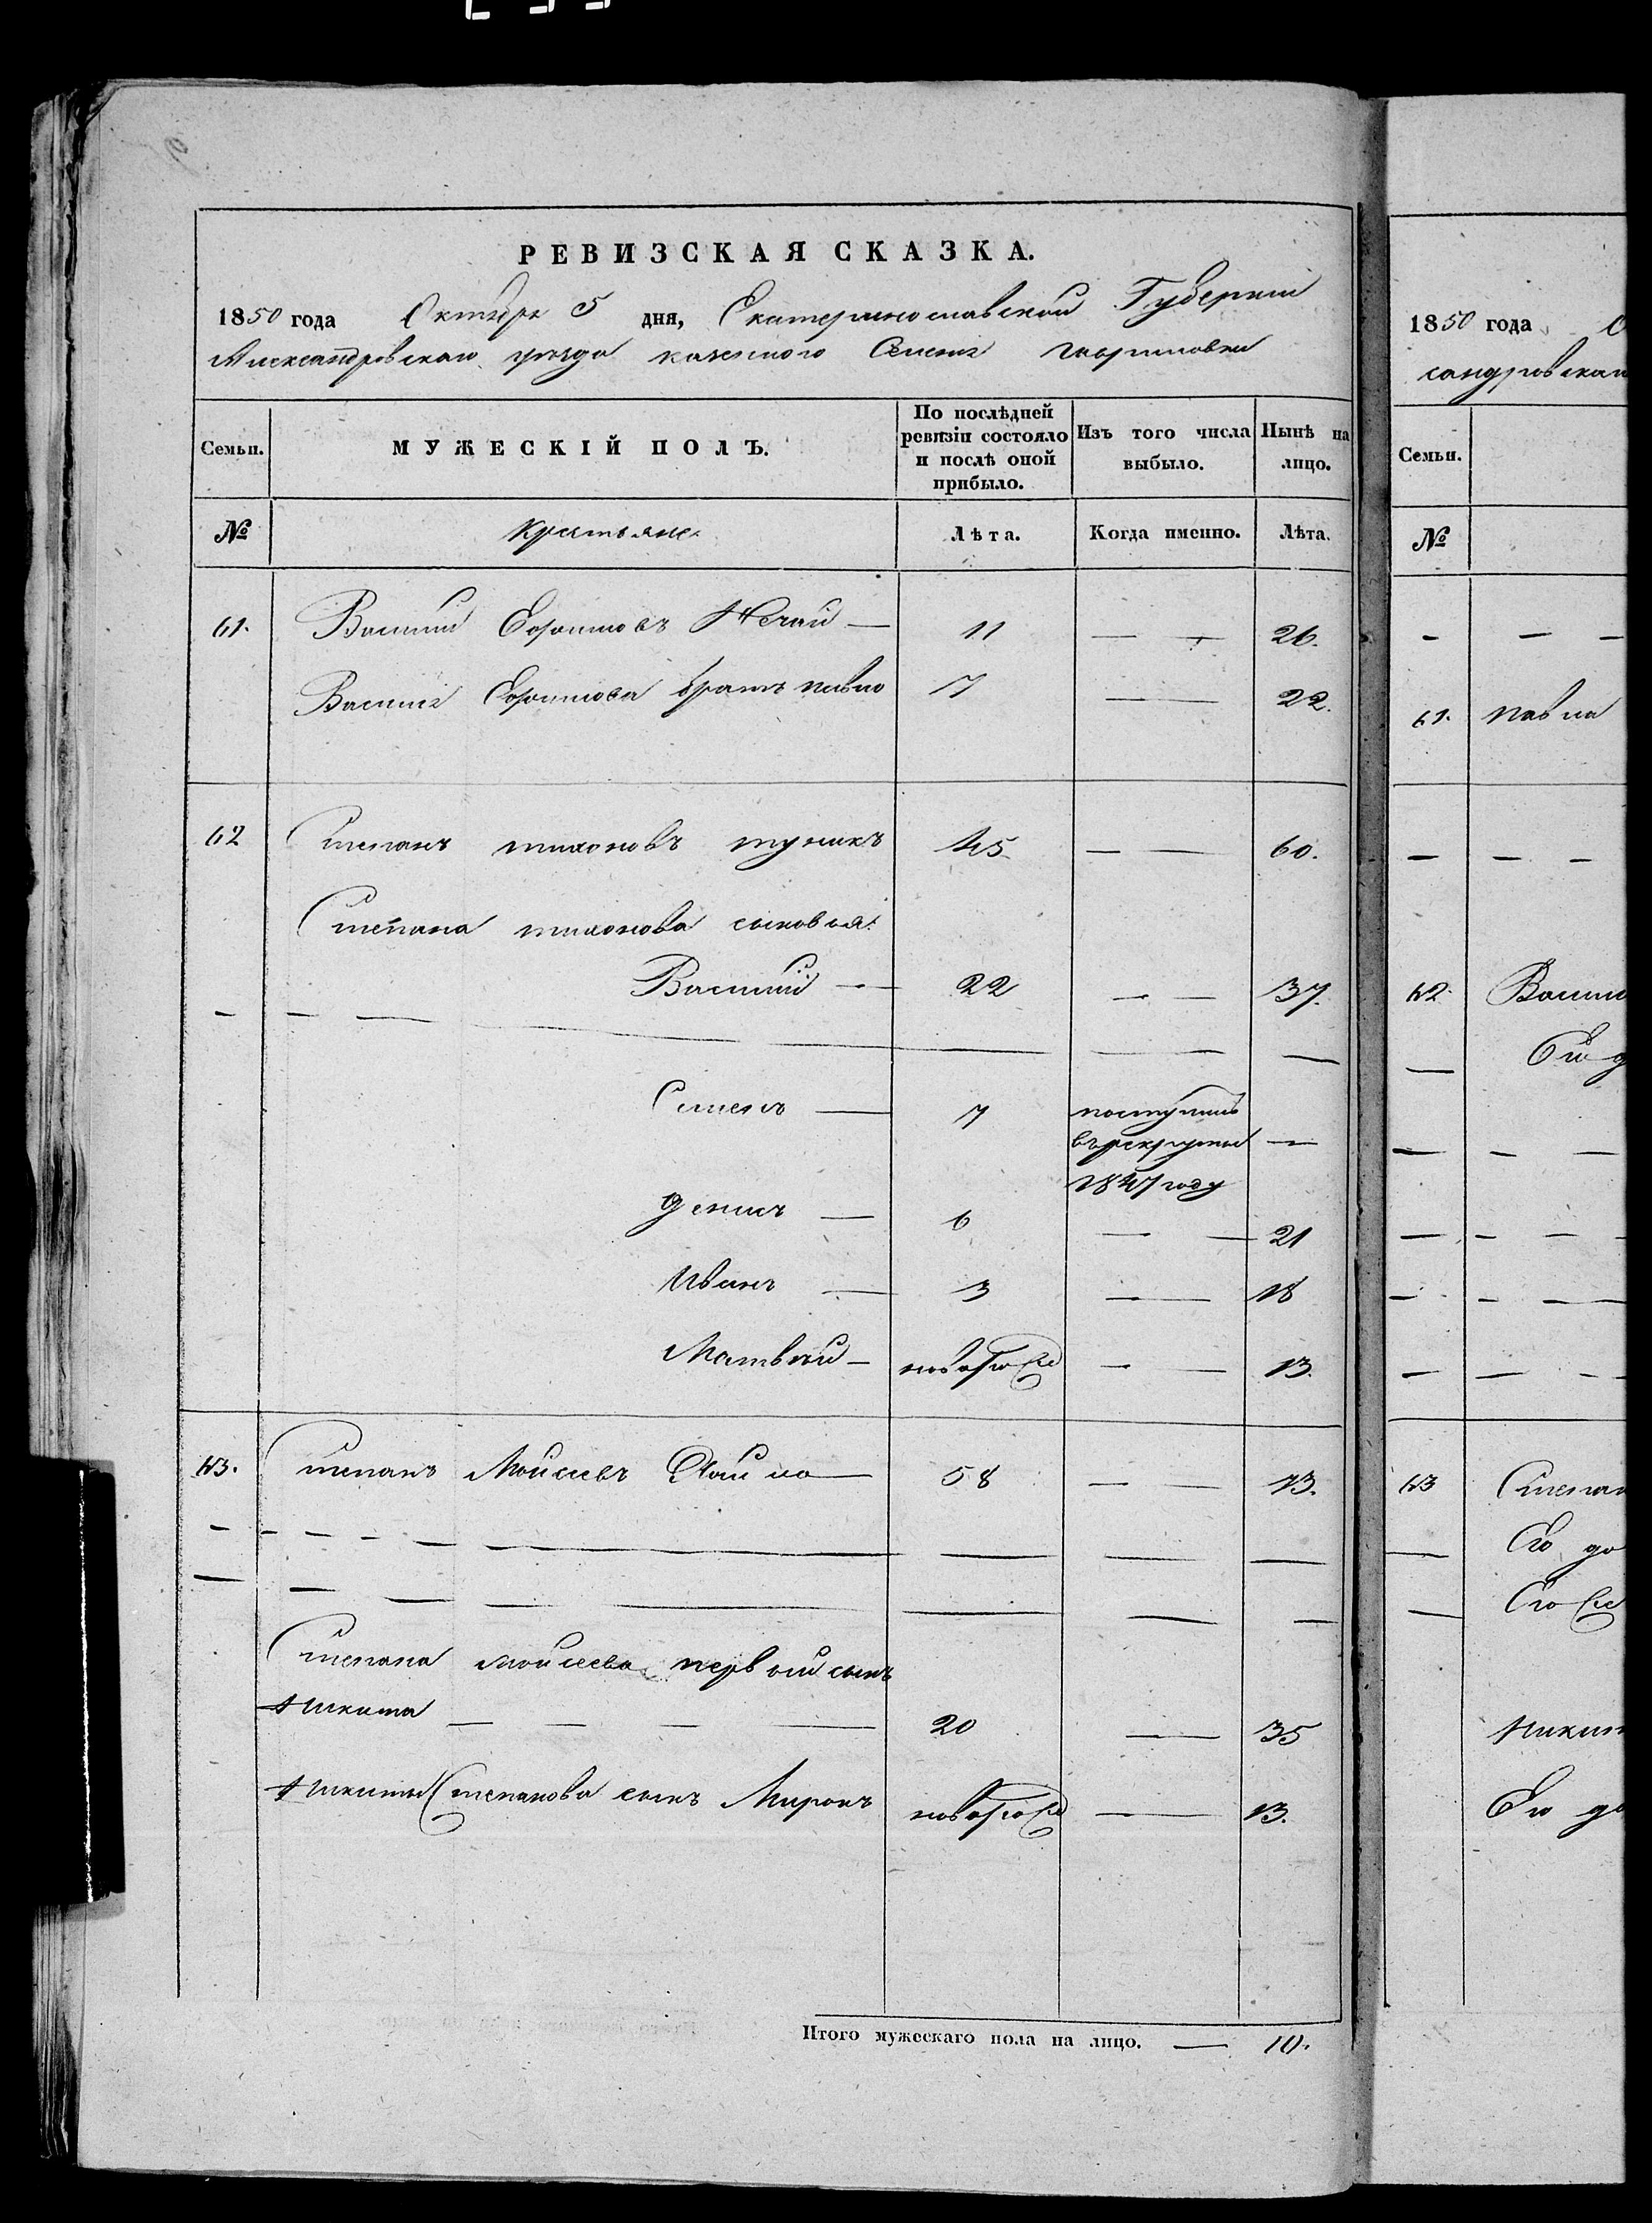 РЕВИЗСКАЯ СКАЗКА.
1850 года Октября 5 дня, Екатеринославской Губернии
Александровскаго уѣзда казенного Селенія Гавриловки
Семьи. МУЖЕСКІЙ ПОЛЪ. По послѣдней ревизіи состояло и послѣ оной прибыло. Изъ того числа выбыло. Нынѣ на лицо.
№ Крестьяне Лѣта. Когда именно. Лѣта.
61. Василий Нечай — 11 — — 26.
Василія братъ Павло 7 — 22.
62 Степанъ тихоновъ 45 — — 60.
Степана тихонова сыновья:
Василий — 22 — — 37.
— — — — — — —
Семенъ — 7 поступилъ
въ рекруты —
1847 году
Денисъ — 6 — — 21
Иванъ — 3 — — 18
Матвей — новорож — — 13.
63. Степанъ Моисеевъ 58 — — 13.
— — — — — — — — —
— — — — — — — —
Степана моисеева первый сынъ
Никита — — — — 20 — 35
Никиты Степанова сынъ Миронъ новорож — 13.
Итого мужескаго пола на лицо. — 10.
1850 года
сандровскаго
Семьи.
№
— — —
61. Павла
— — —
62. Васил
— Его д
— — —
— — —
— — —
— — —
63 Степан
— Его до
— Его
Никит
Его до